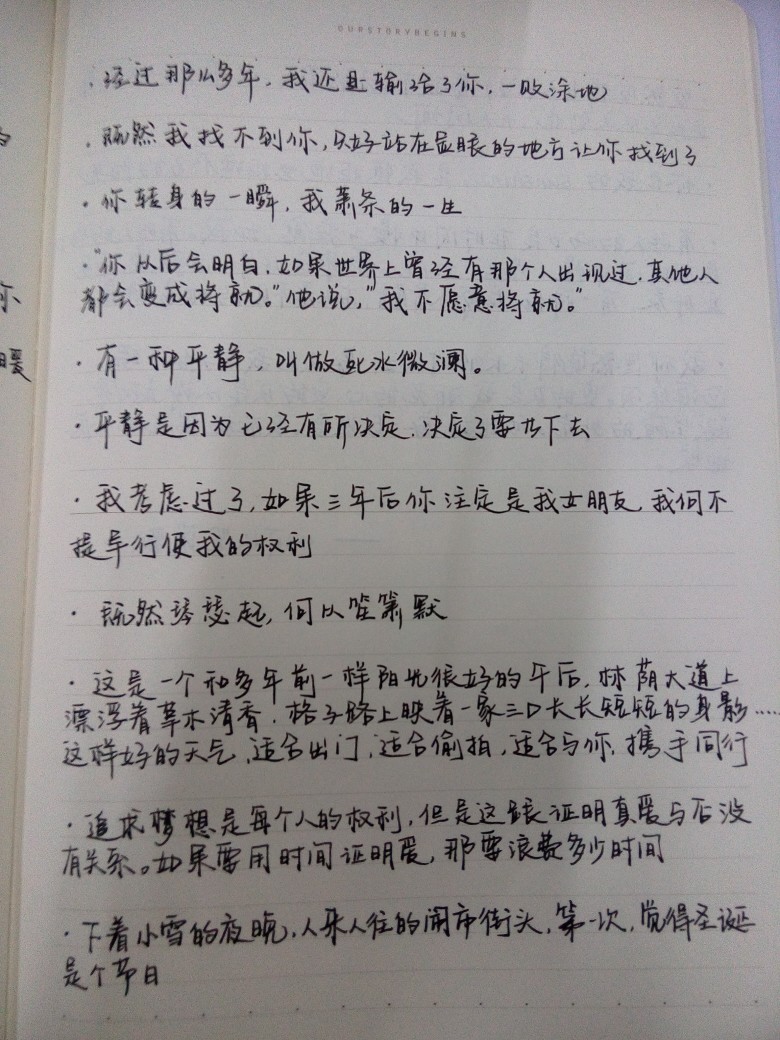 OURSTORYBEGINS
·经过那么多年，我还是输给了你，一败涂地
·既然我找不到你，只好站在显眼的地方让你找到了
·你转身的一瞬，我萧条的一生
·“你以后会明白，如果世界上曾经有那个人出现过，其他人
都会变成将就。”他说，“我不愿意将就。”
·有一种平静，叫做死水微澜。
·平静是因为已经有所决定，决定了要
·我考虑过了，如果三年后你注定是我女朋友，我何不
提早行使我的权利
·既然琴瑟起，何以笙箫默
·这是一个和多年前一样阳光很好的午后，林荫大道上
漂浮着草木清香，格子路上映着一家三口长长短短的身影……
这样好的天气，适合出门，适合偷拍，适合与你，携手同行
·追求梦想是每个人的权利，但是这跟证明真爱与否没
有关系。如果要用时间证明爱，那要浪费多少时间
·下着小雪的夜晚，人来人往的闹市街头，第一次，觉得圣诞
是个节日
你
暖